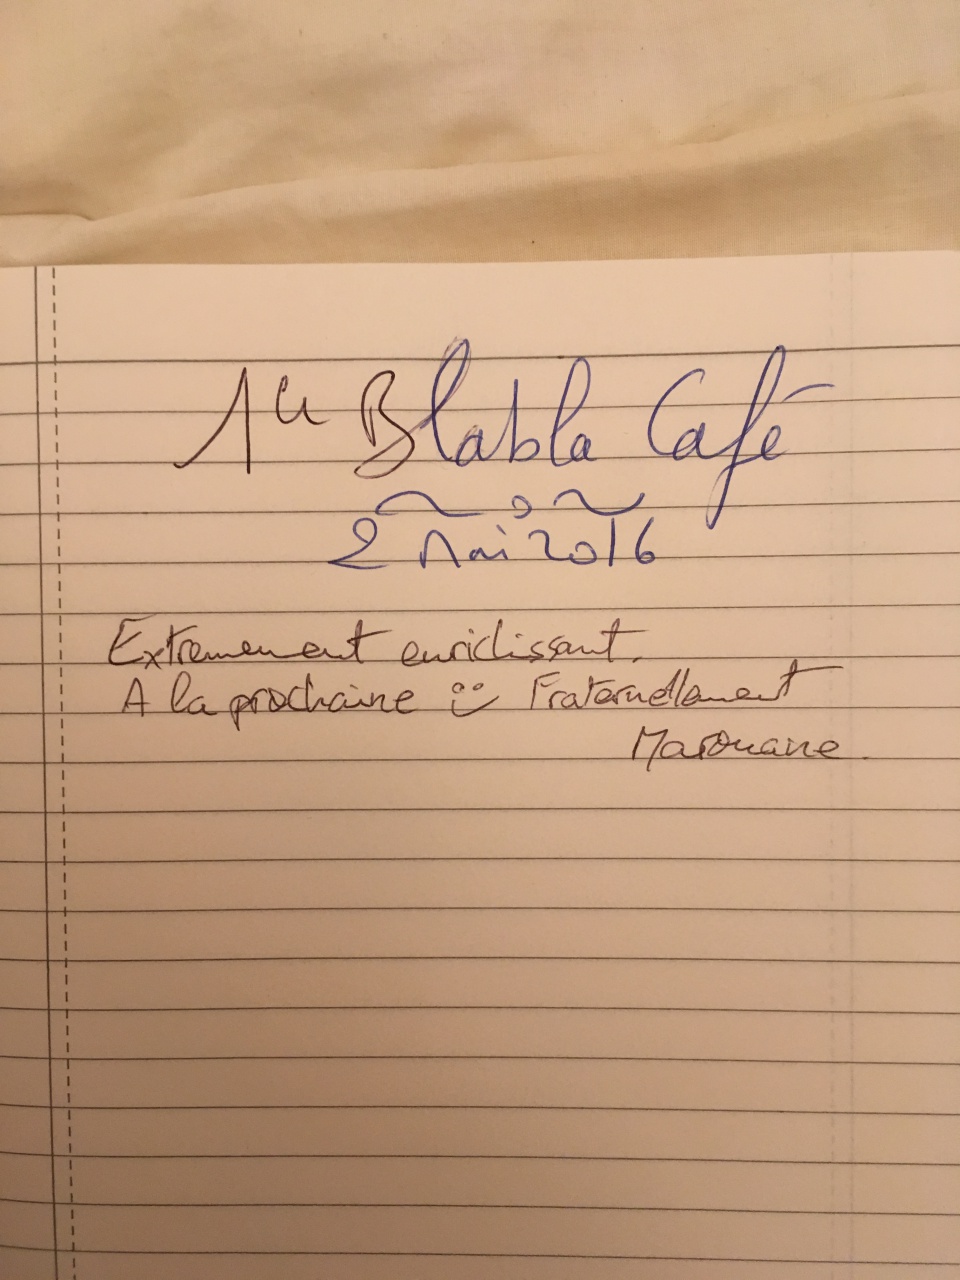 1er Blabla Café
2 Mai 2016
Extremement enrichissant.
A la prochaine Fraternellement
Marouane.